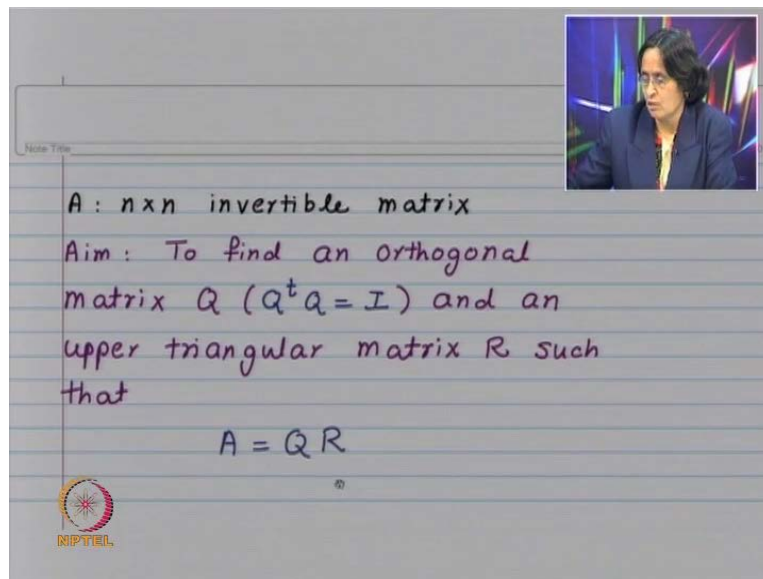 Note Title
A : n x n invertible matrix
Aim : To find an orthogonal
matrix Q (Qᵗ Q = I) and an
upper triangular matrix R such
that
A = Q R
NPTEL